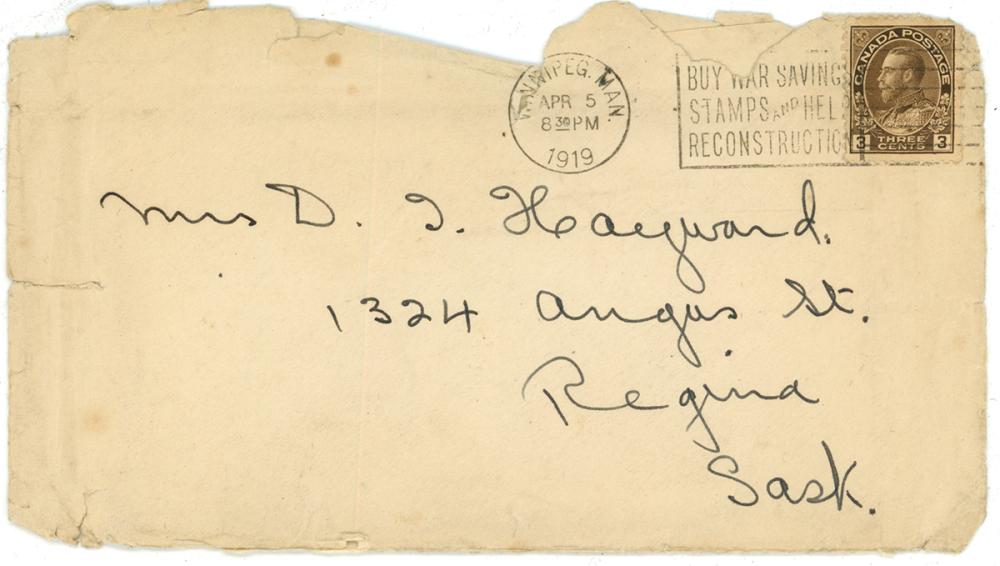 WINNIPEG. MAN.
APR 5
8 30 PM
1919
BUY WAR SAVINGS
STAMPS AND HELP
RECONSTRUCTIO
CANADA POSTAGE
3 THREE CENTS 3
Mrs D. I. Hayward.
1324 Angus St.
Regina
Sask.